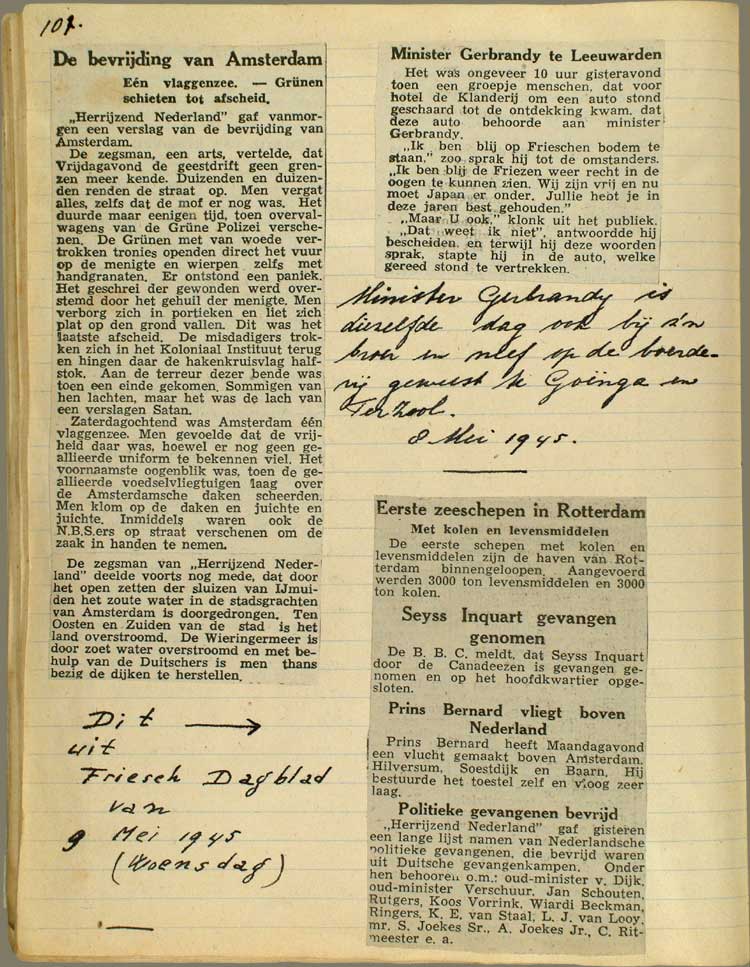 101.
De bevrijding van Amsterdam
Eén vlaggenzee. — Grünen
schieten tot afscheid.
„Herrijzend Nederland" gaf vanmor-
gen een verslag van de bevrijding van
Amsterdam.
De zegsman, een arts, vertelde, dat
Vrijdagavond de geestdrift geen gren-
zen meer kende. Duizenden en duizen-
den renden de straat op. Men vergat
alles, zelfs dat de mof er nog was. Het
duurde maar eenigen tijd, toen overval-
wagens van de Grüne Polizei versche-
nen. De Grünen met van woede ver-
trokken tronies openden direct het vuur
op de menigte en wierpen zelfs met
handgranaten. Er ontstond een paniek.
Het geschrei der gewonden werd over-
stemd door het gehuil der menigte. Men
verborg zich in portieken en liet zich
plat op den grond vallen. Dit was het
laatste afscheid. De misdadigers trok-
ken zich in het Koloniaal Instituut terug
en hingen daar de hakenkruisvlag half-
stok. Aan de terreur dezer bende was
toen een einde gekomen. Sommigen van
hen lachten, maar het was de lach van
een verslagen Satan.
Zaterdagochtend was Amsterdam één
vlaggenzee. Men gevoelde dat de vrij-
heid daar was, hoewel er nog geen ge-
allieerde uniform te bekennen viel. Het
voornaamste oogenblik was, toen de ge-
allieerde voedselvliegtuigen laag over
de Amsterdamsche daken scheerden.
Men klom op de daken en juichte en
juichte. Inmiddels waren ook de
N.B.S.ers op straat verschenen om de
zaak in handen te nemen.
De zegsman van „Herrijzend Neder-
land" deelde voorts nog mede, dat door
het open zetten der sluizen van IJmui-
den het zoute water in de stadsgrachten
van Amsterdam is doorgedrongen. Ten
Oosten en Zuiden van de stad is het
land overstroomd. De Wieringermeer is
door zoet water overstroomd en met be-
hulp van de Duitschers is men thans
bezig de dijken te herstellen.
Dit →
uit
Friesch Dagblad
van
9 Mei 1945
(Woensdag)
Minister Gerbrandy te Leeuwarden
Het was ongeveer 10 uur gisteravond
toen een groepje menschen, dat voor
hotel de Klanderij om een auto stond
geschaard tot de ontdekking kwam, dat
deze auto behoorde aan minister
Gerbrandy.
„Ik ben blij op Frieschen bodem te
staan," zoo sprak hij tot de omstanders.
„Ik ben blij de Friezen weer recht in de
oogen te kunnen zien. Wij zijn vrij en nu
moet Japan er onder. Jullie hebt je in
deze jaren best gehouden."
„Maar U ook," klonk uit het publiek.
„Dat weet ik niet", antwoordde hij
bescheiden, en terwijl hij deze woorden
sprak, stapte hij in de auto, welke
gereed stond te vertrekken.
Minister Gerbrandy is
dieselfde dag ook bij z'n
broer en neef op de boerde-
rij geweest te Goïnga en
Terzool.
8 Mei 1945.
Eerste zeeschepen in Rotterdam
Met kolen en levensmiddelen
De eerste schepen met kolen en
levensmiddelen zijn de haven van Rot-
terdam binnengeloopen. Aangevoerd
werden 3000 ton levensmiddelen en 3000
ton kolen.
Seyss Inquart gevangen
genomen
De B. B. C. meldt, dat Seyss Inquart
door de Canadeezen is gevangen ge-
nomen en op het hoofdkwartier opge-
sloten.
Prins Bernard vliegt boven
Nederland
Prins Bernard heeft Maandagavond
een vlucht gemaakt boven Amsterdam,
Hilversum, Soestdijk en Baarn. Hij
bestuurde het toestel zelf en vloog zeer
laag.
Politieke gevangenen bevrijd
„Herrijzend Nederland" gaf gisteren
een lange lijst namen van Nederlandsche
politieke gevangenen, die bevrijd waren
uit Duitsche gevangenkampen. Onder
hen behooren o.m.: oud-minister v. Dijk,
oud-minister Verschuur, Jan Schouten,
Rutgers, Koos Vorrink, Wiardi Beckman,
Ringers, K. E. van Staal, L. J. van Looy,
mr. S. Joekes Sr., A. Joekes Jr., C. Rit-
meester e. a.